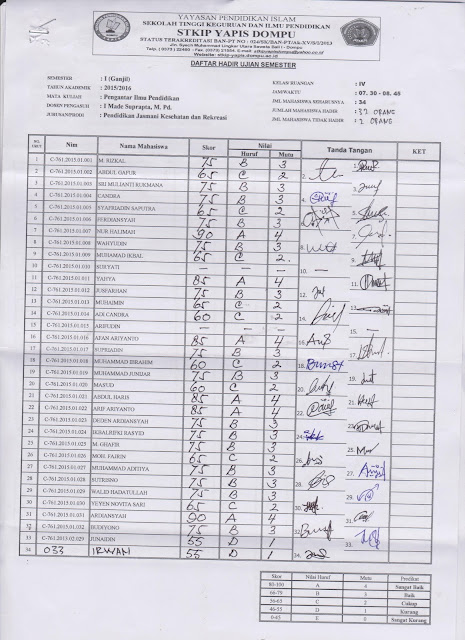 YAYASAN PENDIDIKAN ISLAM
SEKOLAH TINGGI KEGURUAN DAN ILMU PENDIDIKAN
STKIP YAPIS DOMPU
DAFTAR HADIR UJIAN SEMESTER
SEMESTER : I (Ganjil) KELAS/RUANGAN : IV
TAHUN AKADEMIK : 2015/2016 JAM/WAKTU : 07. 30 - 08. 45
MATA KULIAH : Pengantar Ilmu Pendidikan JML MAHASISWA SEHARUSNYA : 34
DOSEN PENGASUH : I Made Suprapta, M. Pd. JUMLAH MAHASISWA HADIR : 32 ORANG
JURUSAN/PRODI : Pendidikan Jasmani Kesehatan dan Rekreasi JML MAHASISWA TIDAK HADIR : 2 ORANG
NO. URUT Nim Nama Mahasiswa Skor Nilai Tanda Tangan KET
Huruf Mutu
1 C-761.2015.01.001 M. RIZKAL 75 B 3 1.
2 C-761.2015.01.002 ABDUL GAFUR 65 C 2 2.
3 C-761.2015.01.003 SRI MULIANTI KUKMANA 75 B 3 3.
4 C-761.2015.01.004 CANDRA 75 B 3 4.
5 C-761.2015.01.005 SYAFRIADIN SAPUTRA 65 C 2
6 C-761.2015.01.006 FERDIANSYAH 75 B 3
7 C-761.2015.01.007 NUR HALIMAH 90 A 4 7.
8 C-761.2015.01.008 WAHYUDIN 75 B 3 8.
9 C-761.2015.01.009 MUHAMAD IKBAL 65 C 2. 9.
10 C-761.2015.01.010 SURYATI — — — 10. —
11 C-761.2015.01.011 YAHYA 85 A 4 11.
12 C-761.2015.01.012 JUSFARHAN 75 B 3 12.
13 C-761.2015.01.013 MUHAIMIN 65 C 2 13.
14 C-761.2015.01.014 ADI CANDRA 60 C 2 14.
15 C-761.2015.01.015 ARIFUDIN — — — 15. —
16 C-761.2015.01.016 AFAN ARIYANTO 85 A 4 16.
17 C-761.2015.01.017 SUPRIADIN 75 B 3 17.
18 C-761.2015.01.018 MUHAMMAD IBRAHIM 60 C 2 18.
19 C-761.2015.01.019 MUHAMMAD JUNIJAR 75 B 3 19.
20 C-761.2015.01.020 MASUD 60 C 2 20.
21 C-761.2015.01.021 ABDUL HARIS 85 A 4 21.
22 C-761.2015.01.022 ARIF ARIYANTO 85 A 4 22.
23 C-761.2015.01.023 DEDEN ARDIANSYAH 75 B 3
24 C-761.2015.01.024 IKBALREPKI RASYID 75 B 3 24.
25 C-761.2015.01.025 M. GHAFIR 75 B 3 25.
26 C-761.2015.01.026 MOH. FAJRIN 65 C 2 26.
27 C-761.2015.01.027 MUHAMMAD ADITIYA 75 B 3 27.
28 C-761.2015.01.028 SUTRISNO 75 B 3 28.
29 C-761.2015.01.029 WALID HADATULLAH 75 B 3 29.
30 C-761.2015.01.030 YEYEN NOVITA SARI 65 C 2 30.
31 C-761.2015.01.031 ARDIANSYAH 90 A 4 31.
32 C-761.2015.01.032 BUDIYONO 75 B 3 32.
33 C-761.2013.02.029 JUNAIDIN 55 D 1 33.
34 033 IRWAN 55 D 1 34.
Skor Nilai Huruf Mutu Predikat
80-100 A 4 Sangat Baik
66-79 B 3 Baik
56-65 C 2 Cukup
46-55 D 1 Kurang
0-45 E 0 Sangat Kurang